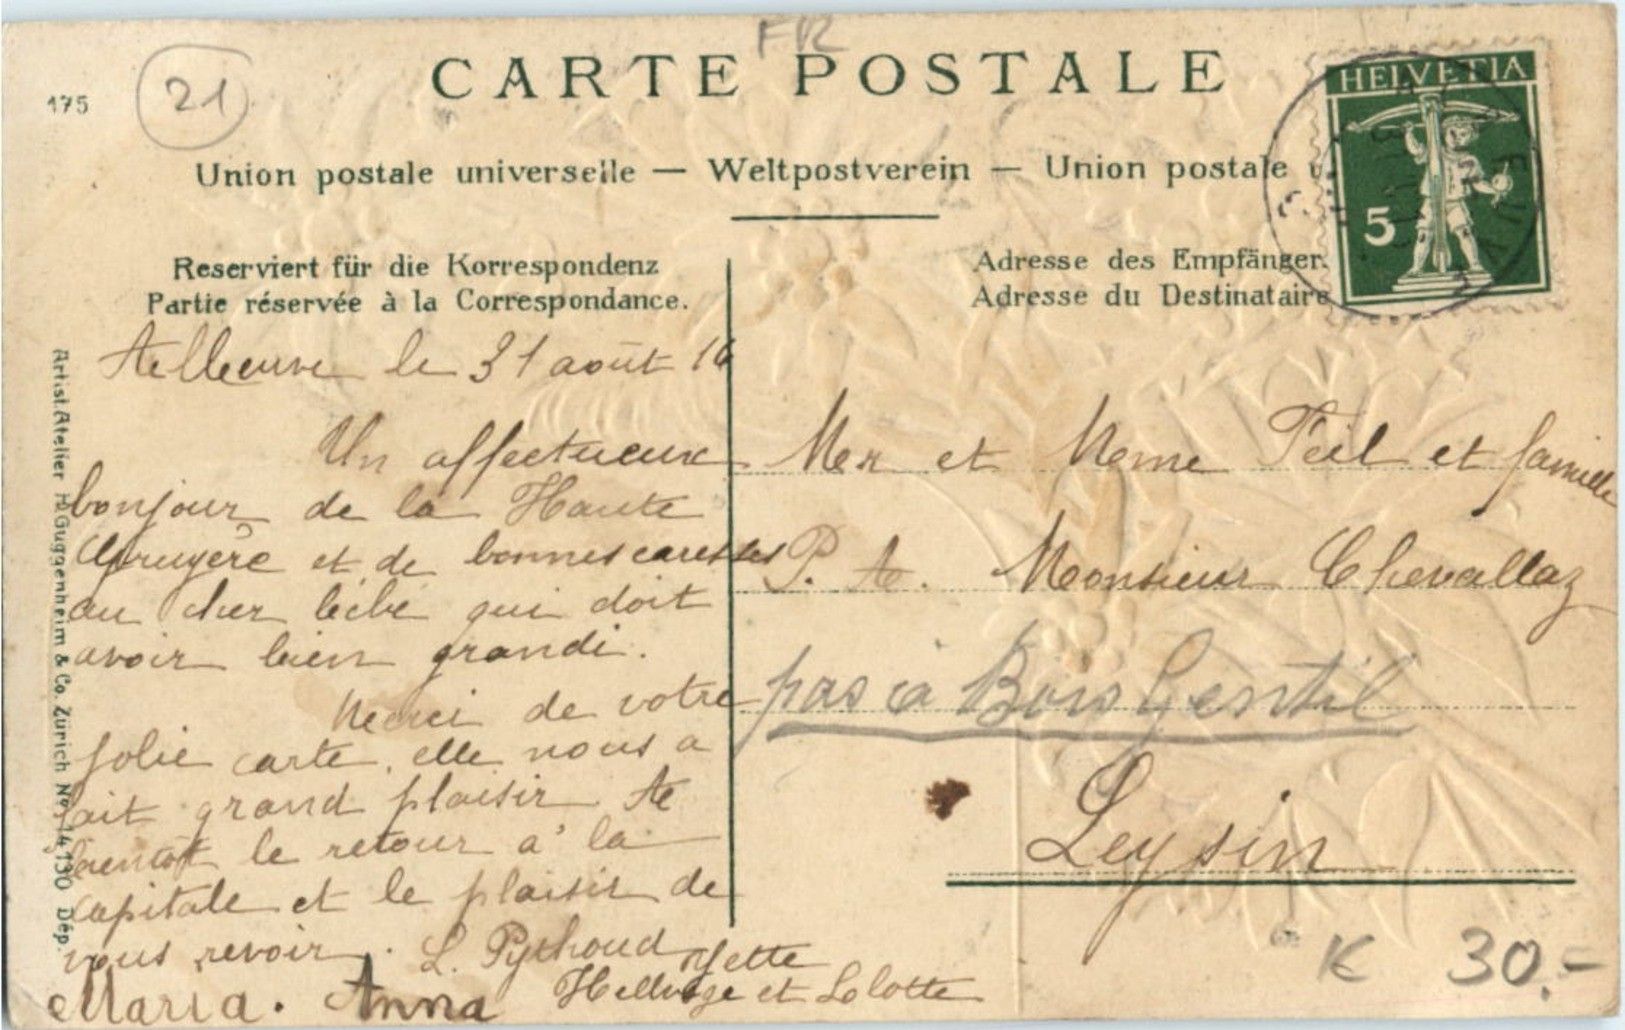 FR
CARTE POSTALE
175
21
HELVETIA
5
Union postale universelle — Weltpostverein — Union postale u
Reserviert für die Korrespondenz
Partie réservée à la Correspondance.
Adresse des Empfänger
Adresse du Destinataire
Artist. Atelier H. Guggenheim & Co. Zürich No. 14130 Dép.
le 31 août 16
Un affectueux
bonjour de la Haute
Gruyère et de bonnes caresses
au cher bébé qui doit
avoir bien grandi.
Merci de votre
jolie carte, elle nous a
fait grand plaisir A
bientôt le retour à la
capitale et le plaisir de
vous revoir. L. Pythoud
Maria. Anna et Lolotte
Mer et Meme Feil et famille
P. A. Monsieur Chevallaz
pas à Bois Gentil
Leysin
K 30.-